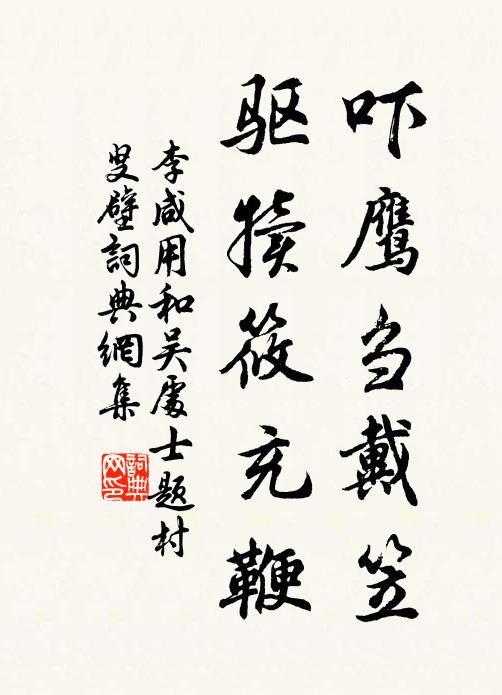 吓鹰刍戴笠
驱犊筱充鞭
李咸用和吴處士题村
叟壁詞典網集
詞典网印